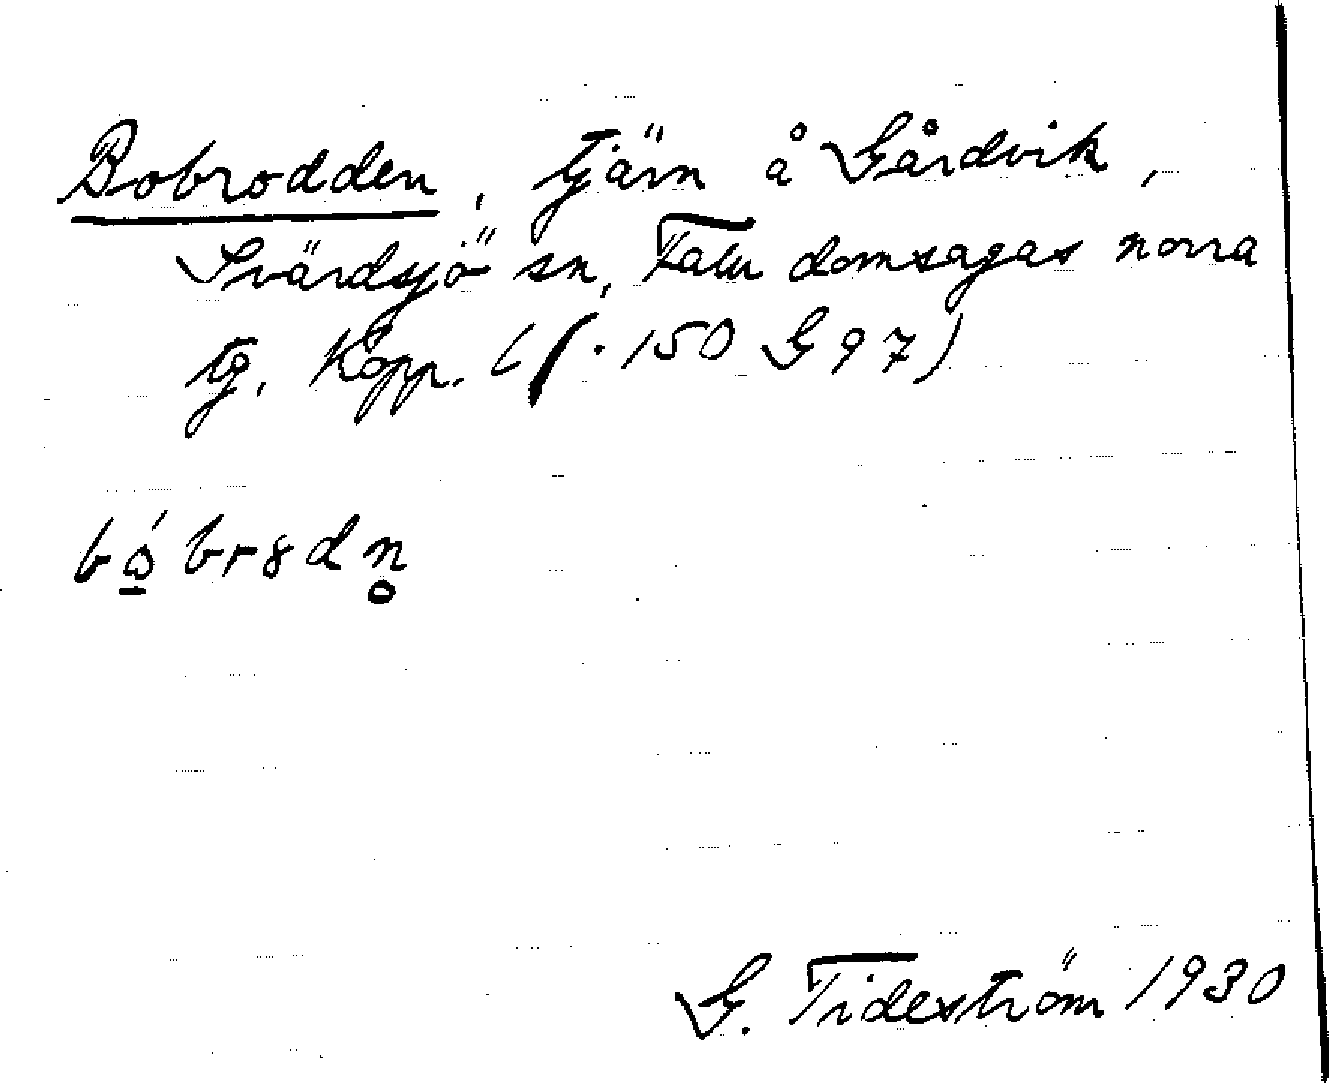 Bobrodden, tjärn å Gårdvik,
Svärdsjö sn, Falu domsagas norra
tg. Kopp. l (f. 150 G 97)
bǻ brȣdn̥
G. Tideström 1930